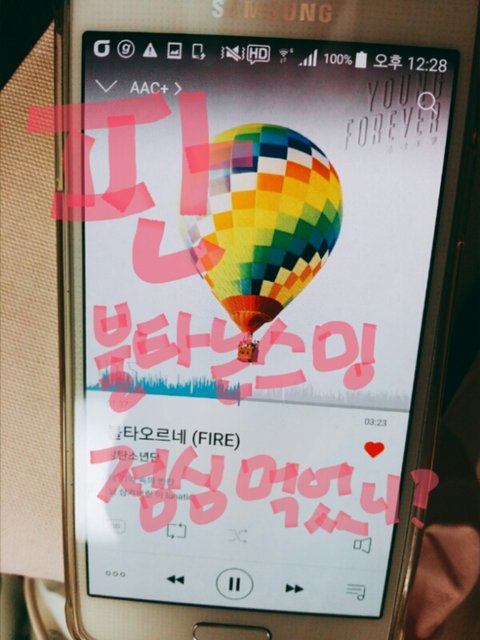 SAMSUNG
HD 100% 오후 12:28
AAC+
YOUNG
FOREVER
판
불타는스밍
03:23
불타오르네 (FIRE)
방탄소년단
lunatic
점심 먹었니?